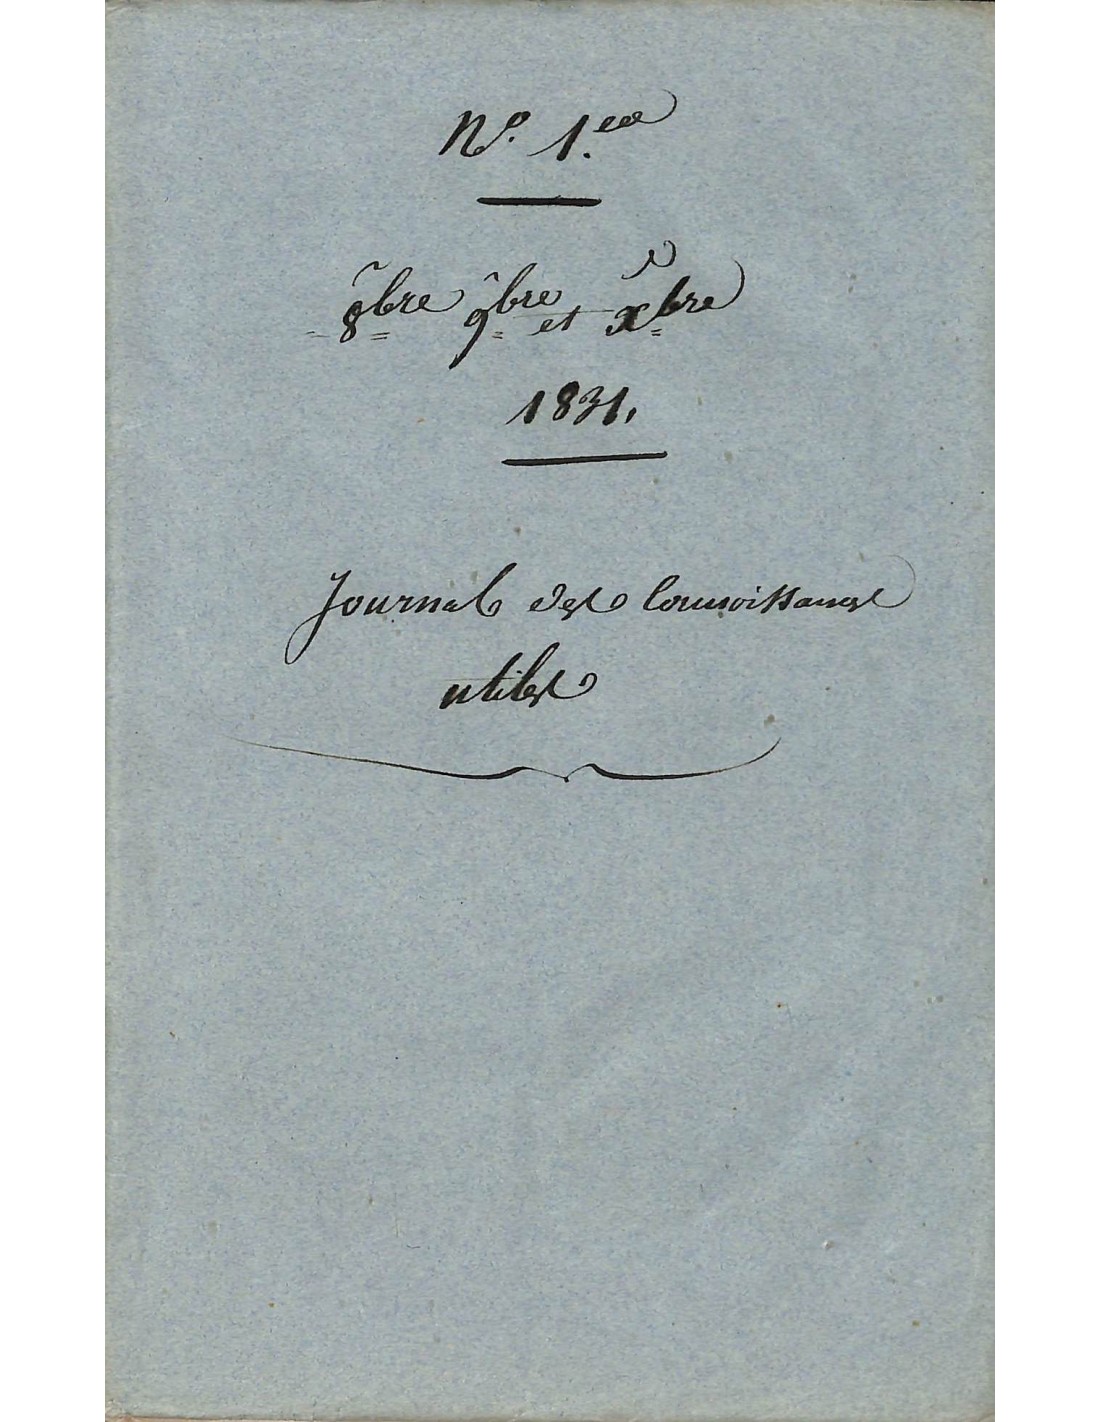 N.o 1.er
8bre 9bre et Xbre
1831.
Journal des Connoissances
utiles